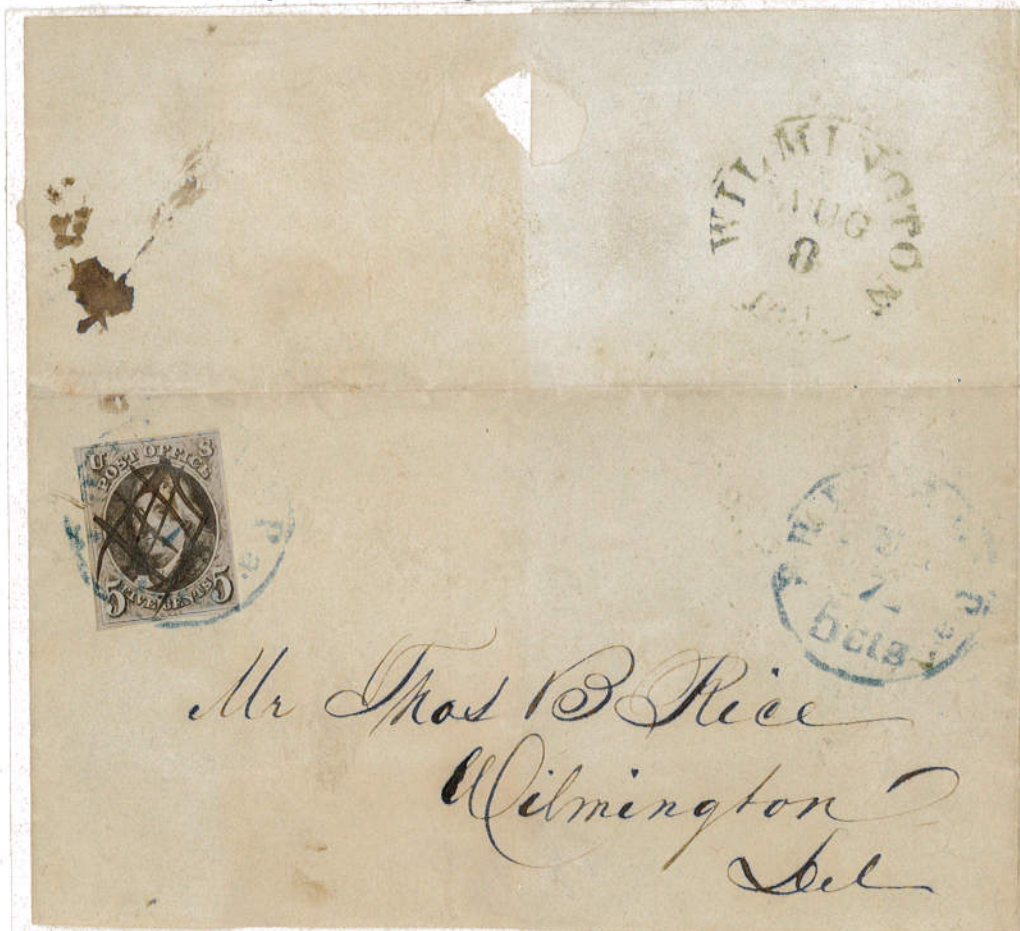 WILMINGTON
AUG
8
U S
POST OFFICE
5 FIVE CENTS 5
Pa.
7
5cts
Pa.
Mr Thos B Rice
Wilmington
Del